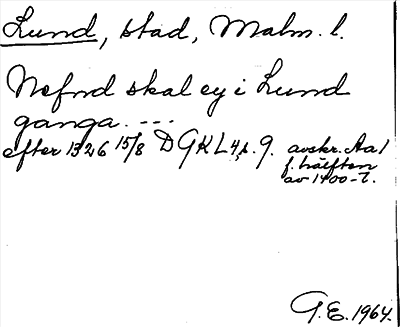 Lund, stad, Malm. l.
Nefnd skal ey i Lund
ganga. ---
efter 1326 15/8 DGKL 4, s. 9. avskr. Aa 1
f. hälften
av 1400-t.
G.E. 1964.